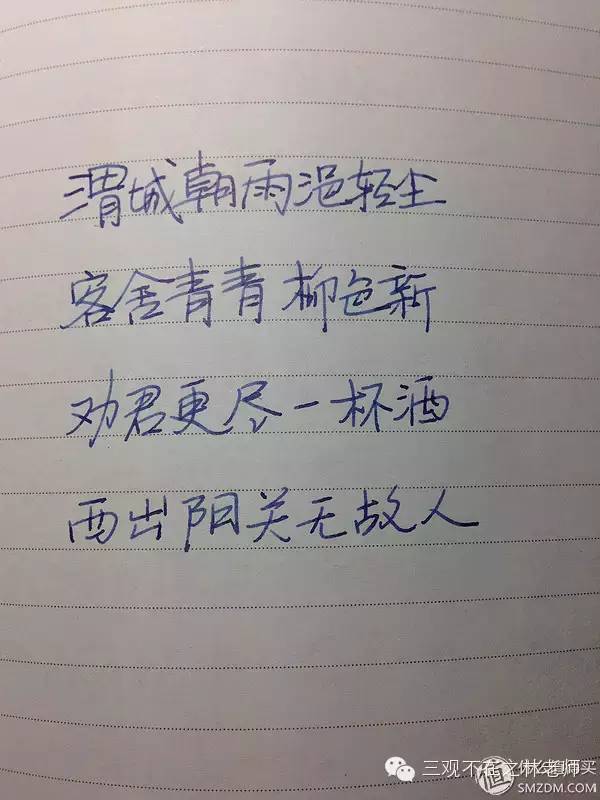 渭城朝雨浥轻尘
客舍青青柳色新
劝君更尽一杯酒
西出阳关无故人
三观不在之林老师
值 什么值得买
SMZDM.COM